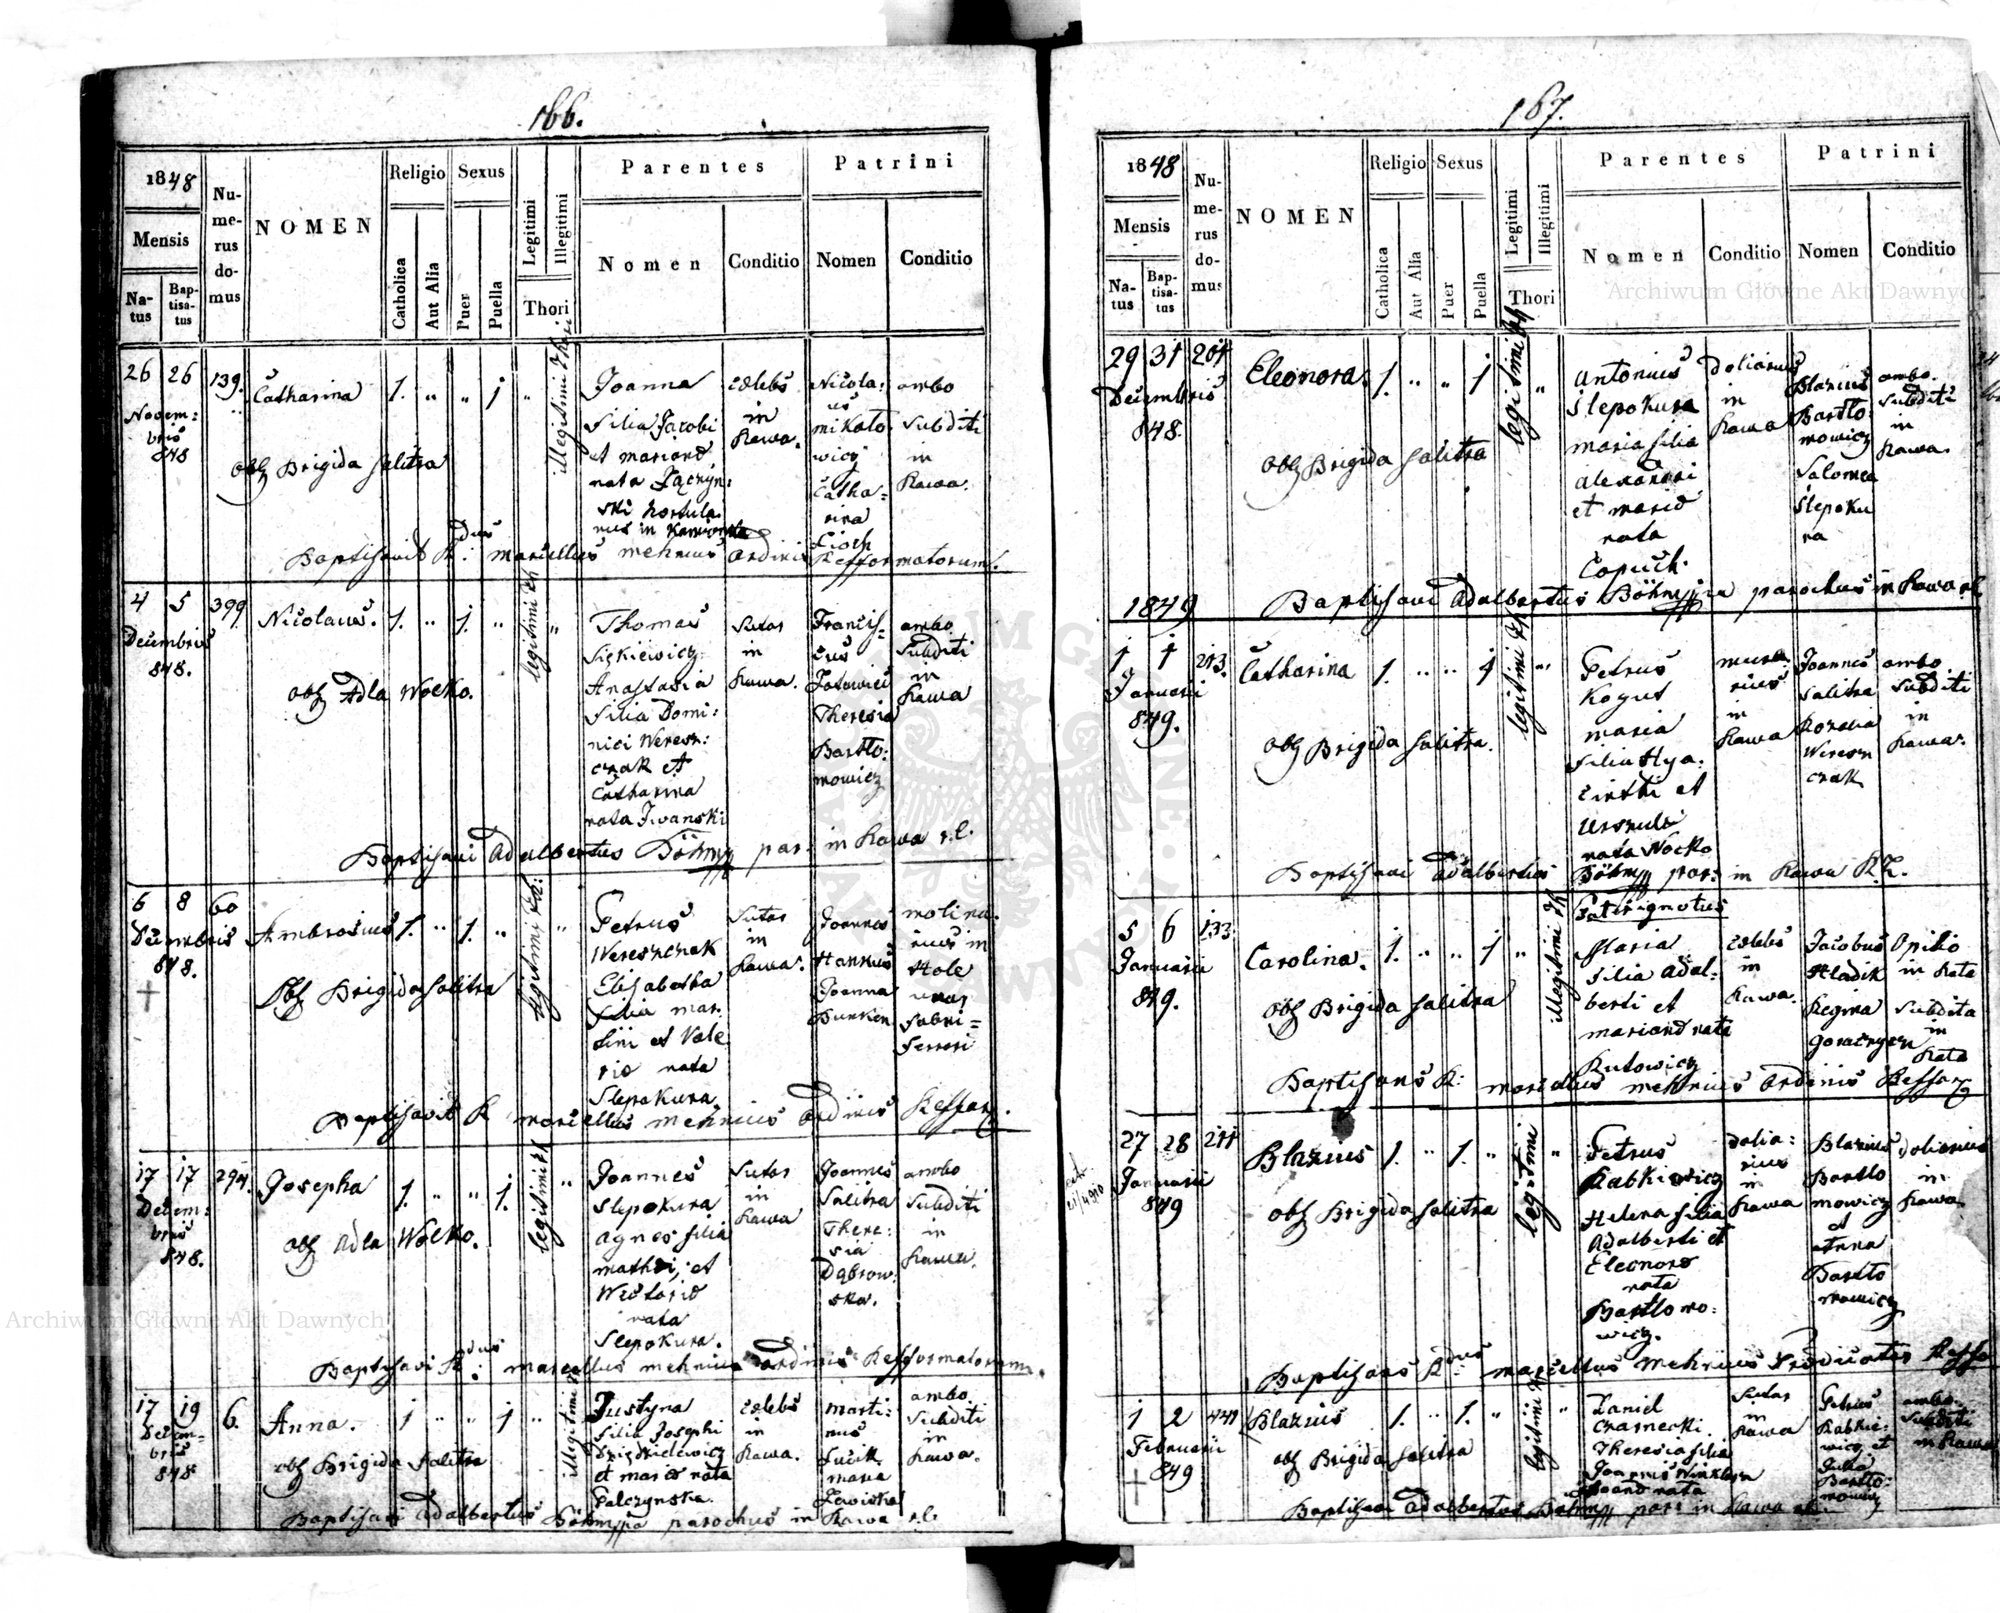 166.
1848
Mensis
Na-
tus
Bap-
tisa-
tus
Nu-
me-
rus
do-
mus
NOMEN
Religio
Catholica
Aut Alia
Sexus
Puer
Puella
Legitimi
Illegitimi
Thori
Parentes
Nomen
Conditio
Patrini
Nomen
Conditio
26 26 139.
Novem:
bris
848
Catharina 1. " " 1 "
obs Brigida Salitra
illegitimi Thori
Joanna
filia Jacobi
et
nata
in
caelebs
in
Rawa.
Nicola:
us
mikoło
wicz
Catha:
rina
Cioch
ambo
Subditi
in
Rawa.
Baptisavit R: dus marcellus mehnius ordinis Refformatorum.
4 5 399
Decembris
848.
Nicolaus. 1. " 1. "
obs Adla Wocko.
legitimi Th
"
Thomas
Sickiewicz
Anastasia
filia Domi:
nici Weresz:
czak et
Catharina
nata Iwanski
Sutor
in
Rawa.
Francis=
cus
Theresia
Bartło:
mowicz
ambo
Subditi
in
Rawa
Baptisavi Adalbertus Böhm par. in Rawa r.l.
6 8 60
Decembris
848.
Ambrosius 1. " 1. "
Obs Brigida Salitra
legitimi Th:
"
Petrus
Wereszczak
Elisabetha
filia mar
tini et Vale
rio nata
Slepokura
Sutor
in
Rawa.
Joannes
Hankus
Joanna
molina:
rius in
Hole
uxor
fabri=
ferreri
Baptisavit R marcellus mehnius ordinis Reffor.
17 17 294.
Decem:
bris
848.
Josepha 1. " " 1.
obs Adla Wocko.
legitimi Th
"
Joannes
Slepokura
agnes filia
mathei, et
Wictorio
nata
Slepokura.
Sutor
in
Rawa
Joannes
Salitra
There:
sia
Dąbrow
ska.
ambo
Subditi
in
Rawa.
Baptisavi R: dus marcellus mehnius ordinis Refformatorum.
17 19 6.
Decem-
bris
848
Anna. 1 " " 1 "
obs Brigida Salitra
illegitimi
Justyna
filia Josephi
et mario nata
Falczynska.
caelebs
in
Rawa.
marti:
nus
Łucik
maria
Zawiska
ambo
Subditi
in
Rawa.
Baptisavi Adalbertus Böhm parochus in Rawa r.l.
167.
1848
Mensis
Na-
tus
Bap-
tisa-
tus
Nu-
me-
rus
do-
mus
NOMEN
Religio
Catholica
Aut Alia
Sexus
Puer
Puella
Legitimi
Illegitimi
Thori
Parentes
Nomen
Conditio
Patrini
Nomen
Conditio
29 31 201
Decembris
848.
Eleonora. 1. " " 1
obs Brigida Salitra
legitimi Th
"
Antonius
Slepokura
maria filia
alexandri
et mario
nata
Capuch.
doliarius
in
Rawa
Blazius
Bartło:
mowicz
Salomea
Slepoku
ra
ambo.
Subditi
in
Rawa.
Baptisavi Adalbertus Böhm parochus in Rawa rl.
1849
1 1 213.
Januarii
849.
Catharina 1. " " 1
obs Brigida Salitra.
legitimi Th
"
Petrus
Kogut
maria
filia Hya:
cinthi et
Urszulo
nata Wocko
mura:
rius
in
Rawa
Joannes
Salitra
Rozalia
Weresz
czak
ambo
Subditi
in
Rawa.
Baptisavi Adalbertus Böhm par: in Rawa R.L.
5 6 133
Januarii
849.
Carolina. 1. " " 1 "
obs Brigida Salitra
illegitimi Th
Pater ignotus
Maria
filia Adal:
berti et
nata
Rutowicz
caelebs
in
Rawa.
Jacobus
Hladik
Regina
Opilio
in Kata
Subdita
in
Kata
Baptisans R: marcellus mehnius ordinis Reffor
27 28 211
Januarii
849
Blazius 1. " 1. "
obs Brigida Salitra
legitimi
"
Petrus
Rabkiewicz
Helena filia
Adalberti et
Eleonoro
nata
Bartłomo:
wicz.
dolia:
rius
in
Rawa
Blazius
Bartło
mowicz
et
Anna
Bartło
mowicz
doliarius
in
Rawa.
Baptisans R: dus marcellus mehnius Predicator Reffo
1 2
Februarii
849
Blazius 1. " 1. "
obs Brigida Salitra
legitimi
"
Daniel
Czarnecki
Theresia filia
Joannis Winkler
nata
Sutor
in
Rawa
Petrus
Rabkie:
wicz et
Julia
Bartło:
mowicz
ambo
Subditi
in Rawa
Baptisavi Adalbertus Böhm par: in Rawa rl.
Archiwum Główne Akt Dawnych
Archiwum Główne Akt Dawnych